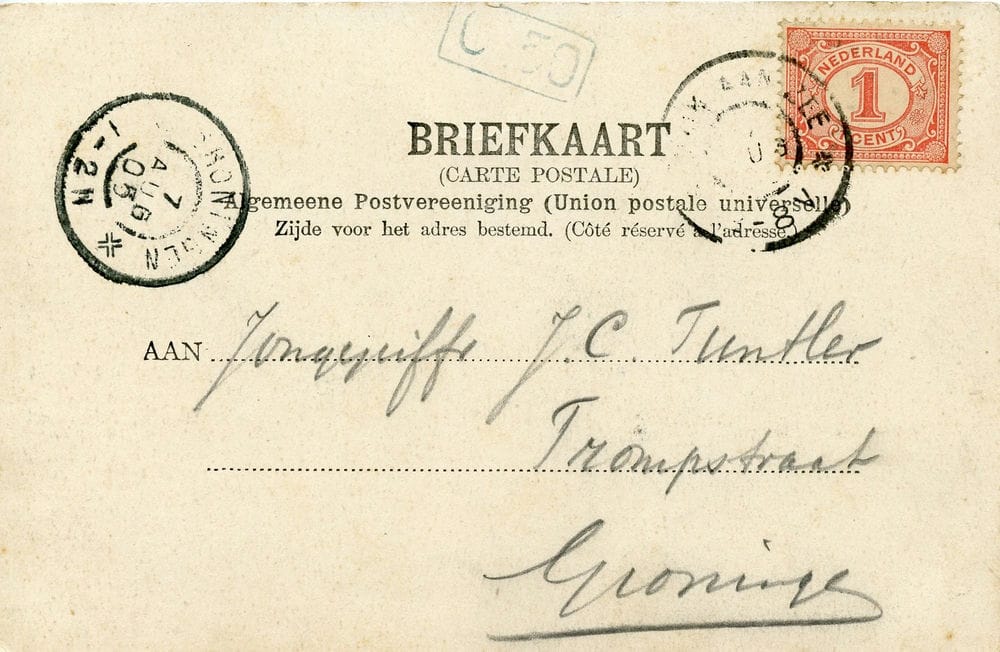 NEDERLAND
1
CENT
BRIEFKAART
(CARTE POSTALE)
Algemeene Postvereeniging (Union postale universelle)
Zijde voor het adres bestemd. (Côté réservé à l'adresse.)
7
AUG
05
1-2N
AAN J. C. Tuntler
Trompstraat
Groningen